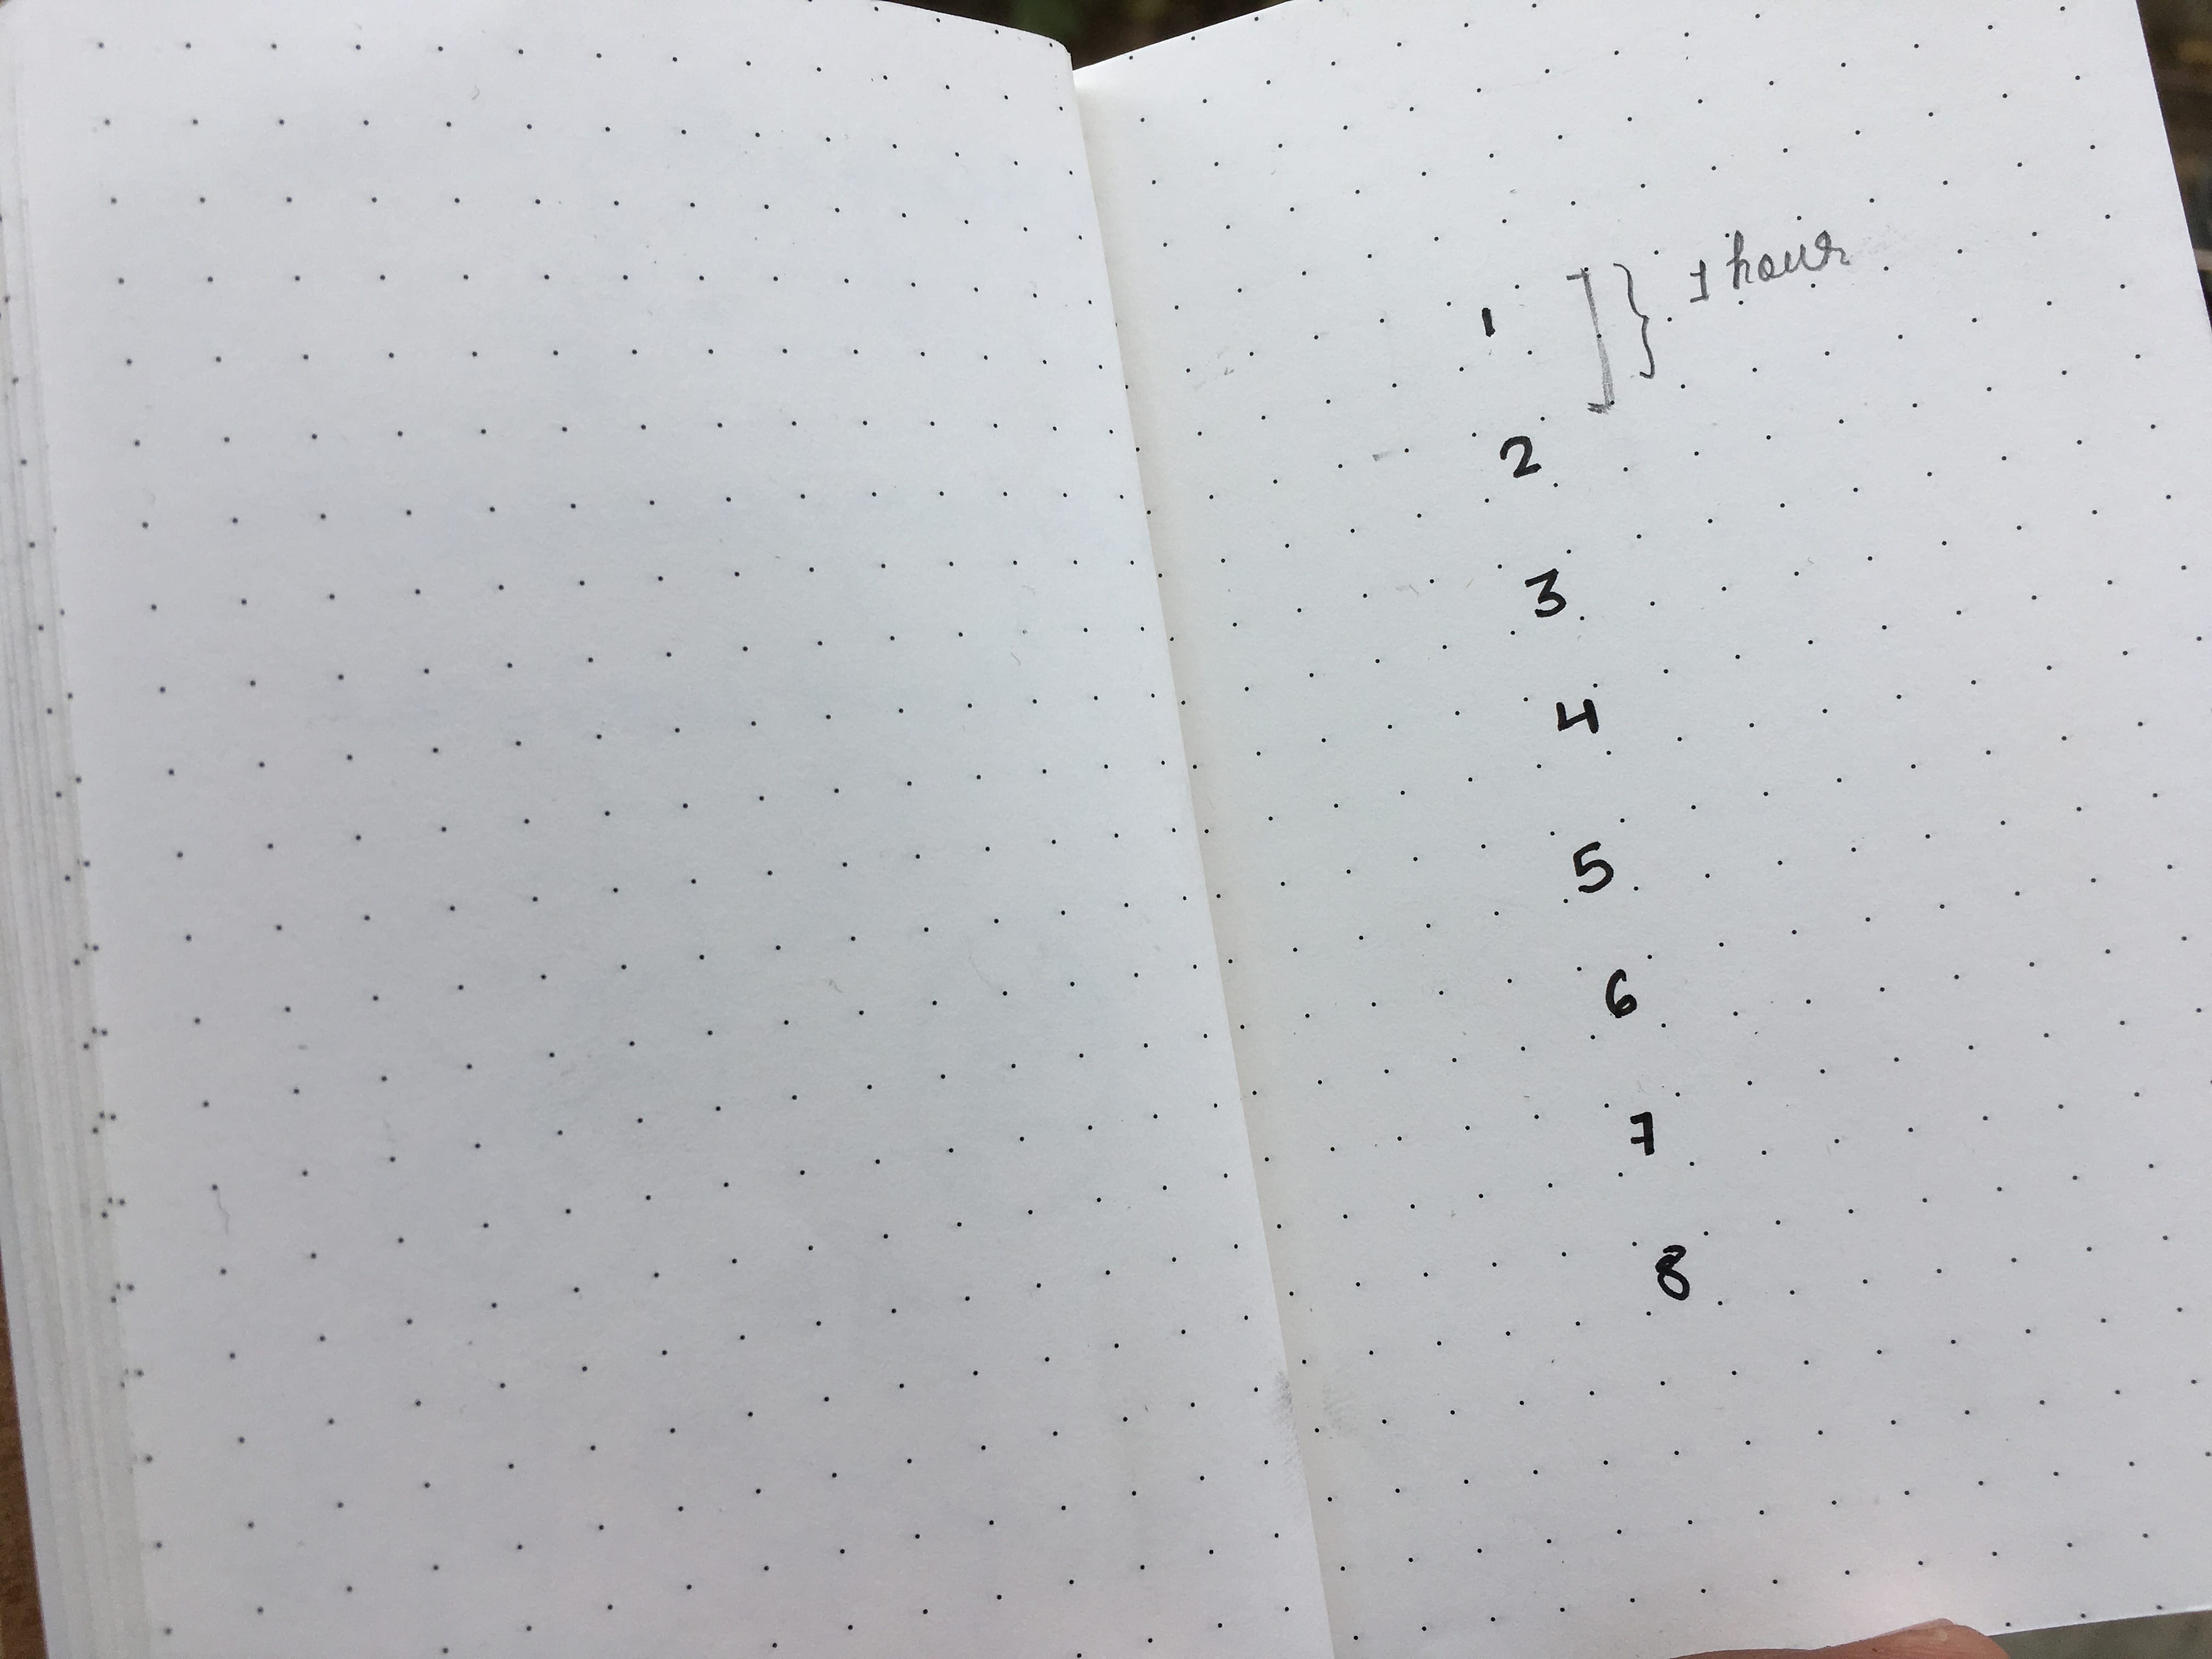 1 ] } 1 hour
2
3
4
5
6
7
8